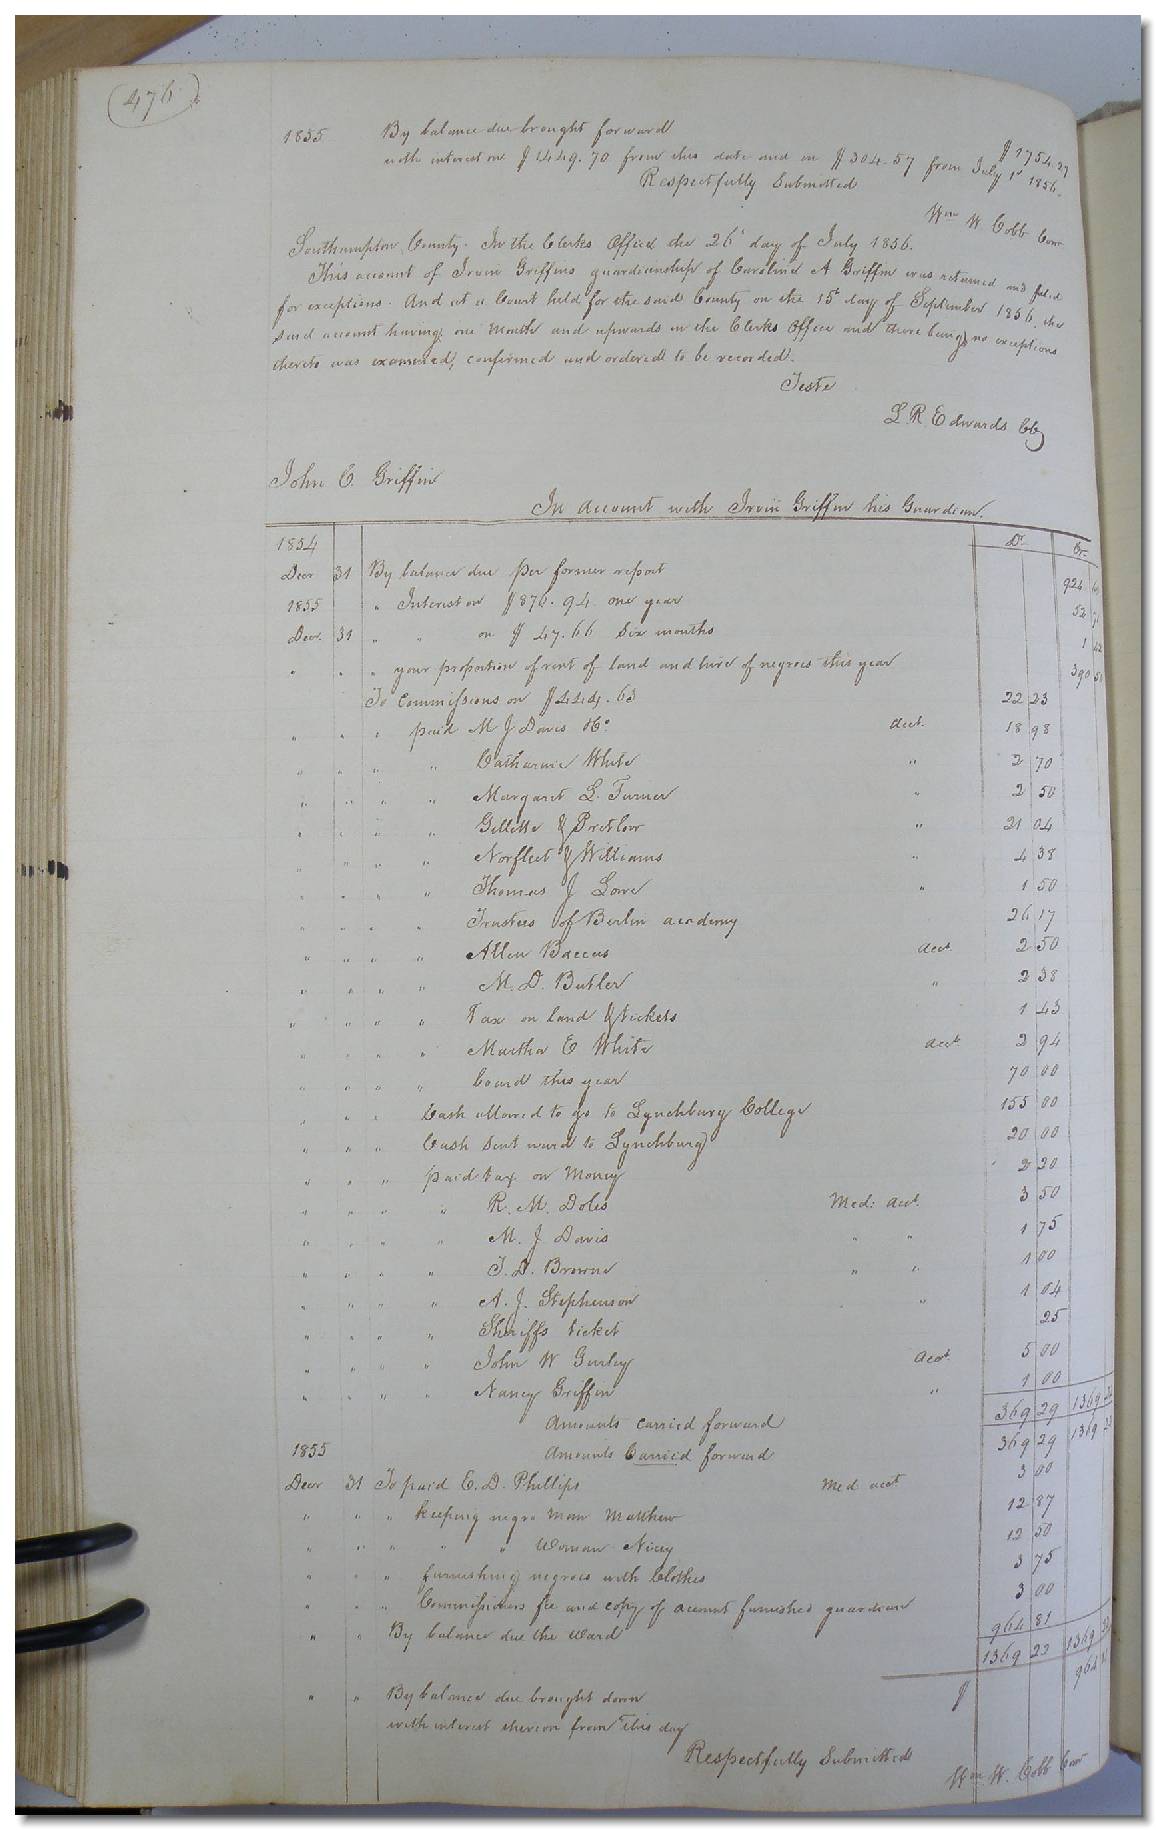 476
1855 By balance due brought forward $1754.27
with interest on $1449.70 from this date and on $304.57 from July 1st 1856.
Respectfully Submitted
Wm W. Cobb Com
Southampton County. In the Clerks Office the 26 day of July 1856.
This account of Irvin Griffins guardianship of Caroline A Griffin was returned and filed
for exceptions. And at a Court held for the said County on the 15t day of September 1856, the
said account having one month and upwards in the Clerks Office and there being no exceptions
thereto was examined, confirmed and ordered to be recorded.
Teste
L. R. Edwards CC
John C. Griffin
In account with Irvin Griffin his Guardian.
1854 Dr. Cr.
Decr 31 By balance due per former report 924
1855 " Interest on $876.94 one year 52
Decr. 31 " " on $47.66 Six months 1 42
" " " your proportion of rent of land and hire of negroes this year 390 50
To Commissions on $444.63 22 23
" " " paid M J Davis &Co acct. 18 98
" " " " Catharine White " 2 70
" " " " Margaret L. Turner " 2 50
" " " " Gillette & Pretlow " 21 04
" " " " Norfleet & Williams " 4 38
" " " " Thomas J Lowe " 1 50
" " " " Trustees of Berlin academy 26 17
" " " " Allen Baccus acct 2 50
" " " " M. D. Butler " 2 38
" " " " Tax on land & tickets 1 43
" " " " Martha E White acct 2 94
" " " " board this year 70 00
" " " Cash allowed to go to Lynchburg College 155 00
" " " Cash sent ward to Lynchburg 20 00
" " " paid tax on Money 2 20
" " " " R. M. Doles Med: acct. 3 50
" " " " M. J Davis " " 1 75
" " " " T. D. Browne " " 1 00
" " " " A. J. Stephenson " 1 04
" " " " Sheriffs ticket 25
" " " " John W Gurley acct. 5 00
" " " " Nancy Griffin " 1 00
Amounts carried forward 369 29 1369
1855 Amounts Carried forward 369 29 1369
Decr 31 To paid E. D. Phillips Med acct 3 00
" " " keeping negro man Matthew 12 87
" " " " " Woman Nicey 12 50
" " " furnishing negroes with Clothes 3 75
" " " Commissioners fee and copy of account furnished guardian 3 00
" " By balance due the Ward 964 81
1369 23 1369
" " By balance due brought down $ 964
with interest thereon from this day
Respectfully Submitted
Wm W. Cobb Com